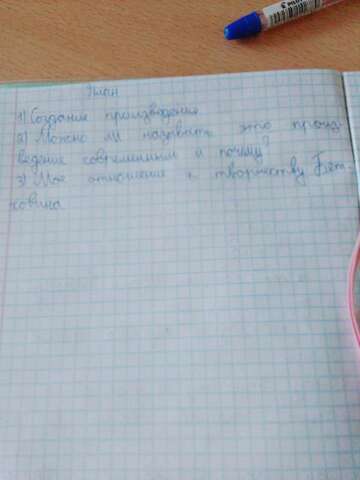 План
1) Создание произведения
2) Можно ли назвать это произ-
ведение современным и почему?
3) Моё отношение к творчеству Бет-
ховина